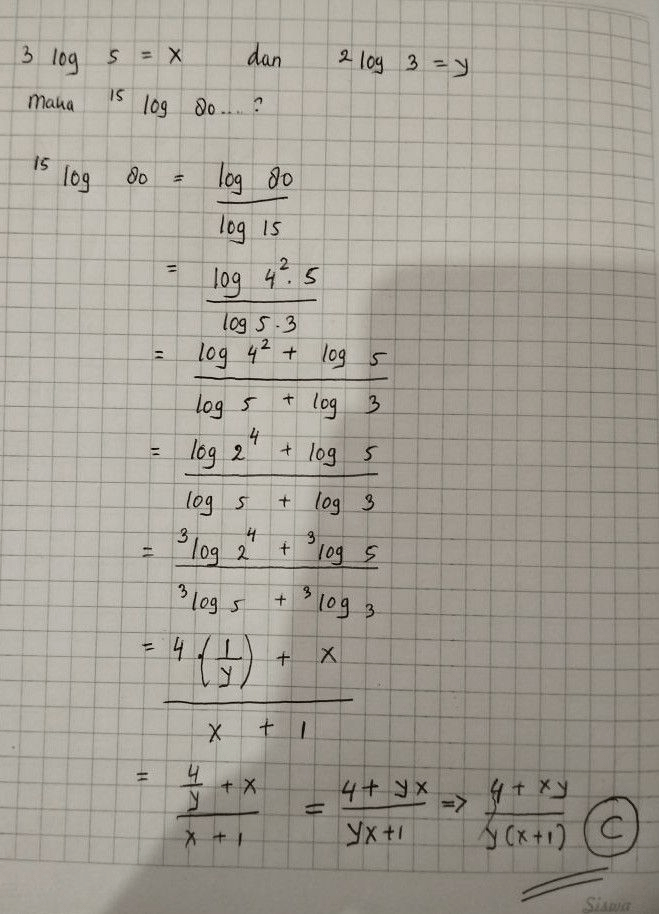 3 log 5 = x dan 2 log 3 = y
maka ¹⁵ log 80....?
¹⁵ log 80 = log 80 / log 15
= log 4² · 5 / log 5 · 3
= log 4² + log 5 / log 5 + log 3
= log 2⁴ + log 5 / log 5 + log 3
= ³log 2⁴ + ³log 5 / ³log 5 + ³log 3
= 4 · (1/y) + x / x + 1
= 4/y + x / x + 1 = 4 + yx / yx + 1 => 4 + xy / y(x+1) C
Siswa